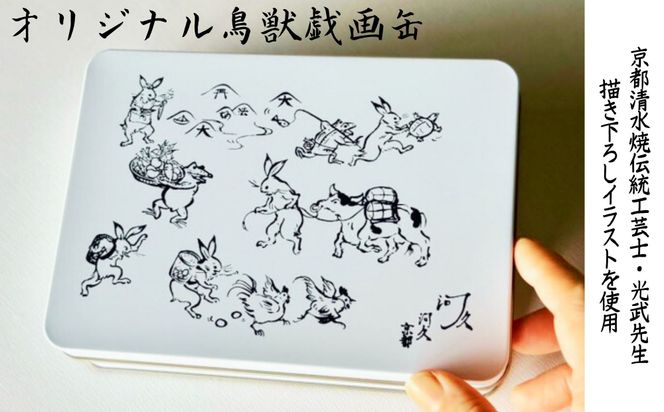 オリジナル鳥獣戯画缶
京都清水焼伝統工芸士・光武先生
描き下ろしイラストを使用
大
大
河久
河久
京都